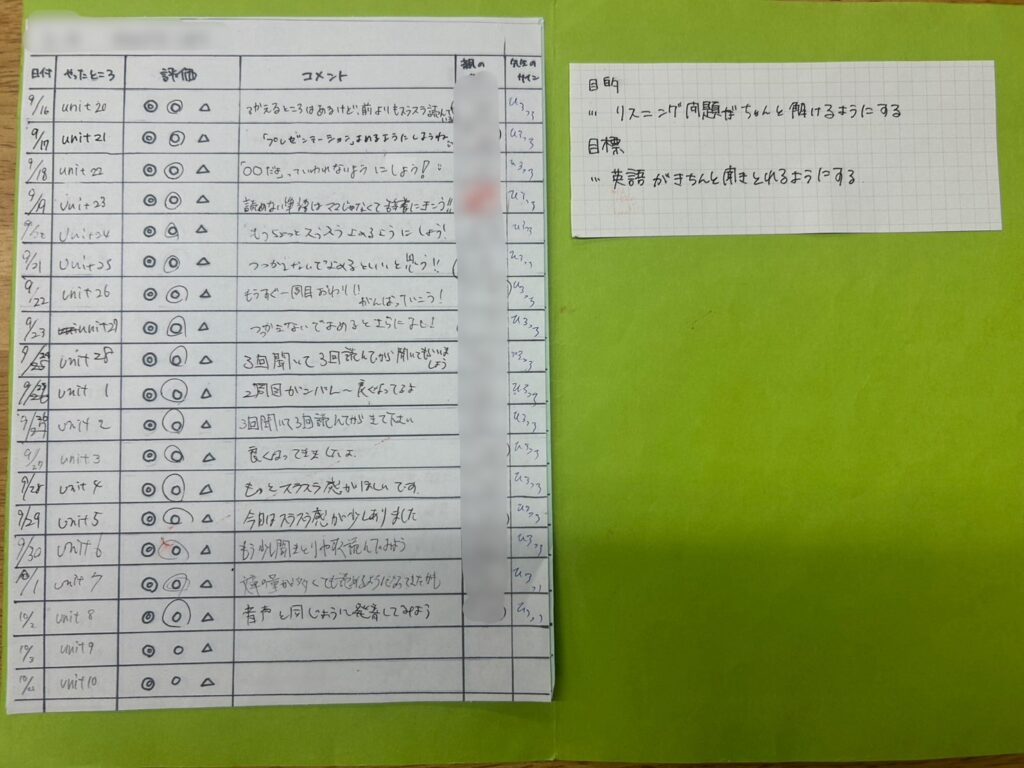 日付 やったところ 評価 コメント 親の 先生のサイン
9/16 unit 20 ◎ ○ △ まがえるところはあるけど、前よりもスラスラ読んでいる
9/17 unit 21 ◎ ○ △ 「プレゼンテーション」よめるようにしようね
9/18 unit 22 ◎ ○ △ 「○○だよ」っていわれないようにしよう!
9/19 unit 23 ◎ ○ △ 読めない単語はママじゃなくて辞書にきこう!!
unit 24 ◎ ○ △ もうちょっとスラスラよめるようにしよう!
9/21 unit 25 ◎ ○ △ つっかえないでよめるといいと思う!!
9/22 unit 26 ◎ ○ △ もうすぐ一周目おわり!! がんばっていこう!
9/23 unit 27 ◎ ○ △ つっかえないでよめるとさらによし!
9/25 unit 28 ◎ ○ △ 3回聞いて3回読んでから聞いてもらいましょう
9/26 unit 1 ◎ ○ △ 2周目ガンバレ〜良くなってるよ
9/27 unit 2 ◎ ○ △ 3回聞いて3回読んでから来て下さい
9/27 unit 3 ◎ ○ △ 良くなってきましたよ
9/28 unit 4 ◎ ○ △ もっとスラスラ感がほしいです
9/29 unit 5 ◎ ○ △ 今日はスラスラ感が少しありました
9/30 unit 6 ◎ ○ △ もう少し聞きとりやすく読んでみよう
/1 unit 7 ◎ ○ △ の量が多くても読めるようになってきたかも
10/2 unit 8 ◎ ○ △ 音声と同じように発音してみよう
10/3 unit 9 ◎ ○ △
unit 10 ◎ ○ △
目的
… リスニング問題がちゃんと解けるようにする
目標
… 英語がきちんと聞きとれるようにする